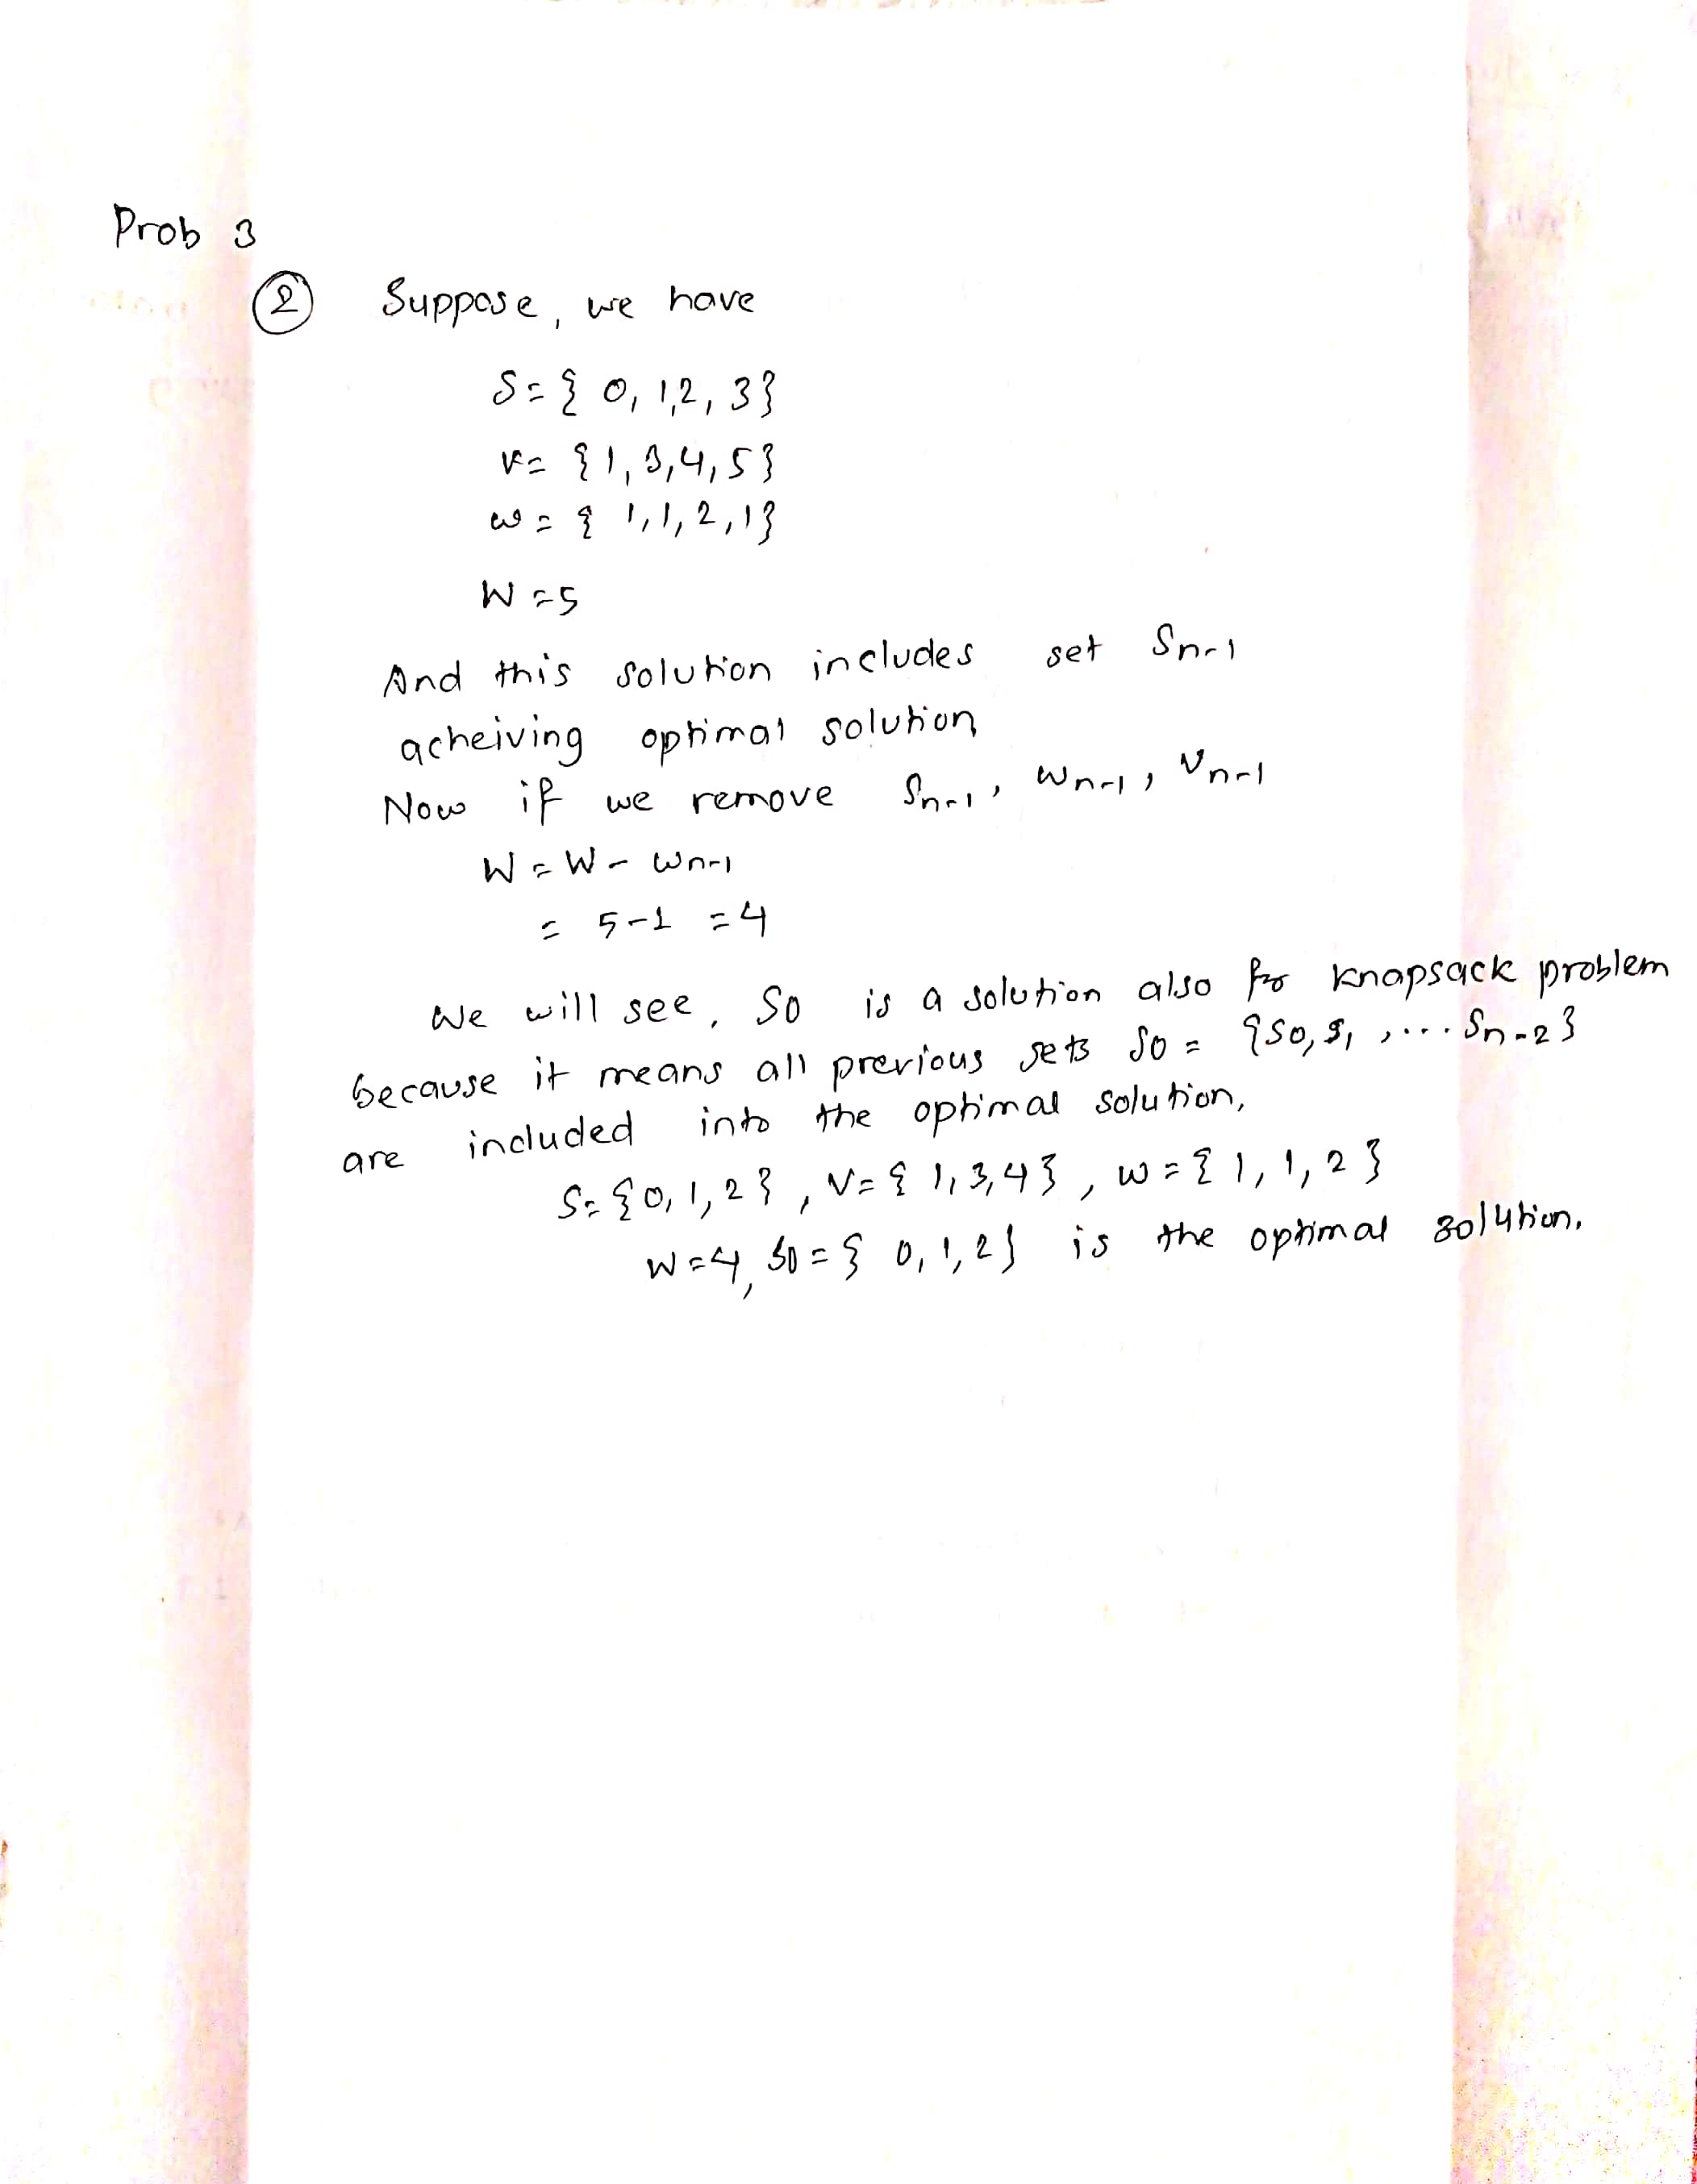 Prob 3
② Suppose, we have
S = { 0, 1,2, 3}
v = {1, 3,4, 5}
w = { 1,1, 2,1}
W = 5
And this solution includes set Sn-1
acheiving optimal solution
Now if we remove Sn-1, Wn-1, Vn-1
W = W - Wn-1
= 5-1 = 4
We will see, So is a solution also for knapsack problem
because it means all previous sets So = {So, S1, ... Sn-2}
are included into the optimal solution,
S = {0, 1, 2}, V = { 1, 3, 4}, w = { 1, 1, 2}
W=4, So = { 0, 1, 2} is the optimal solution.